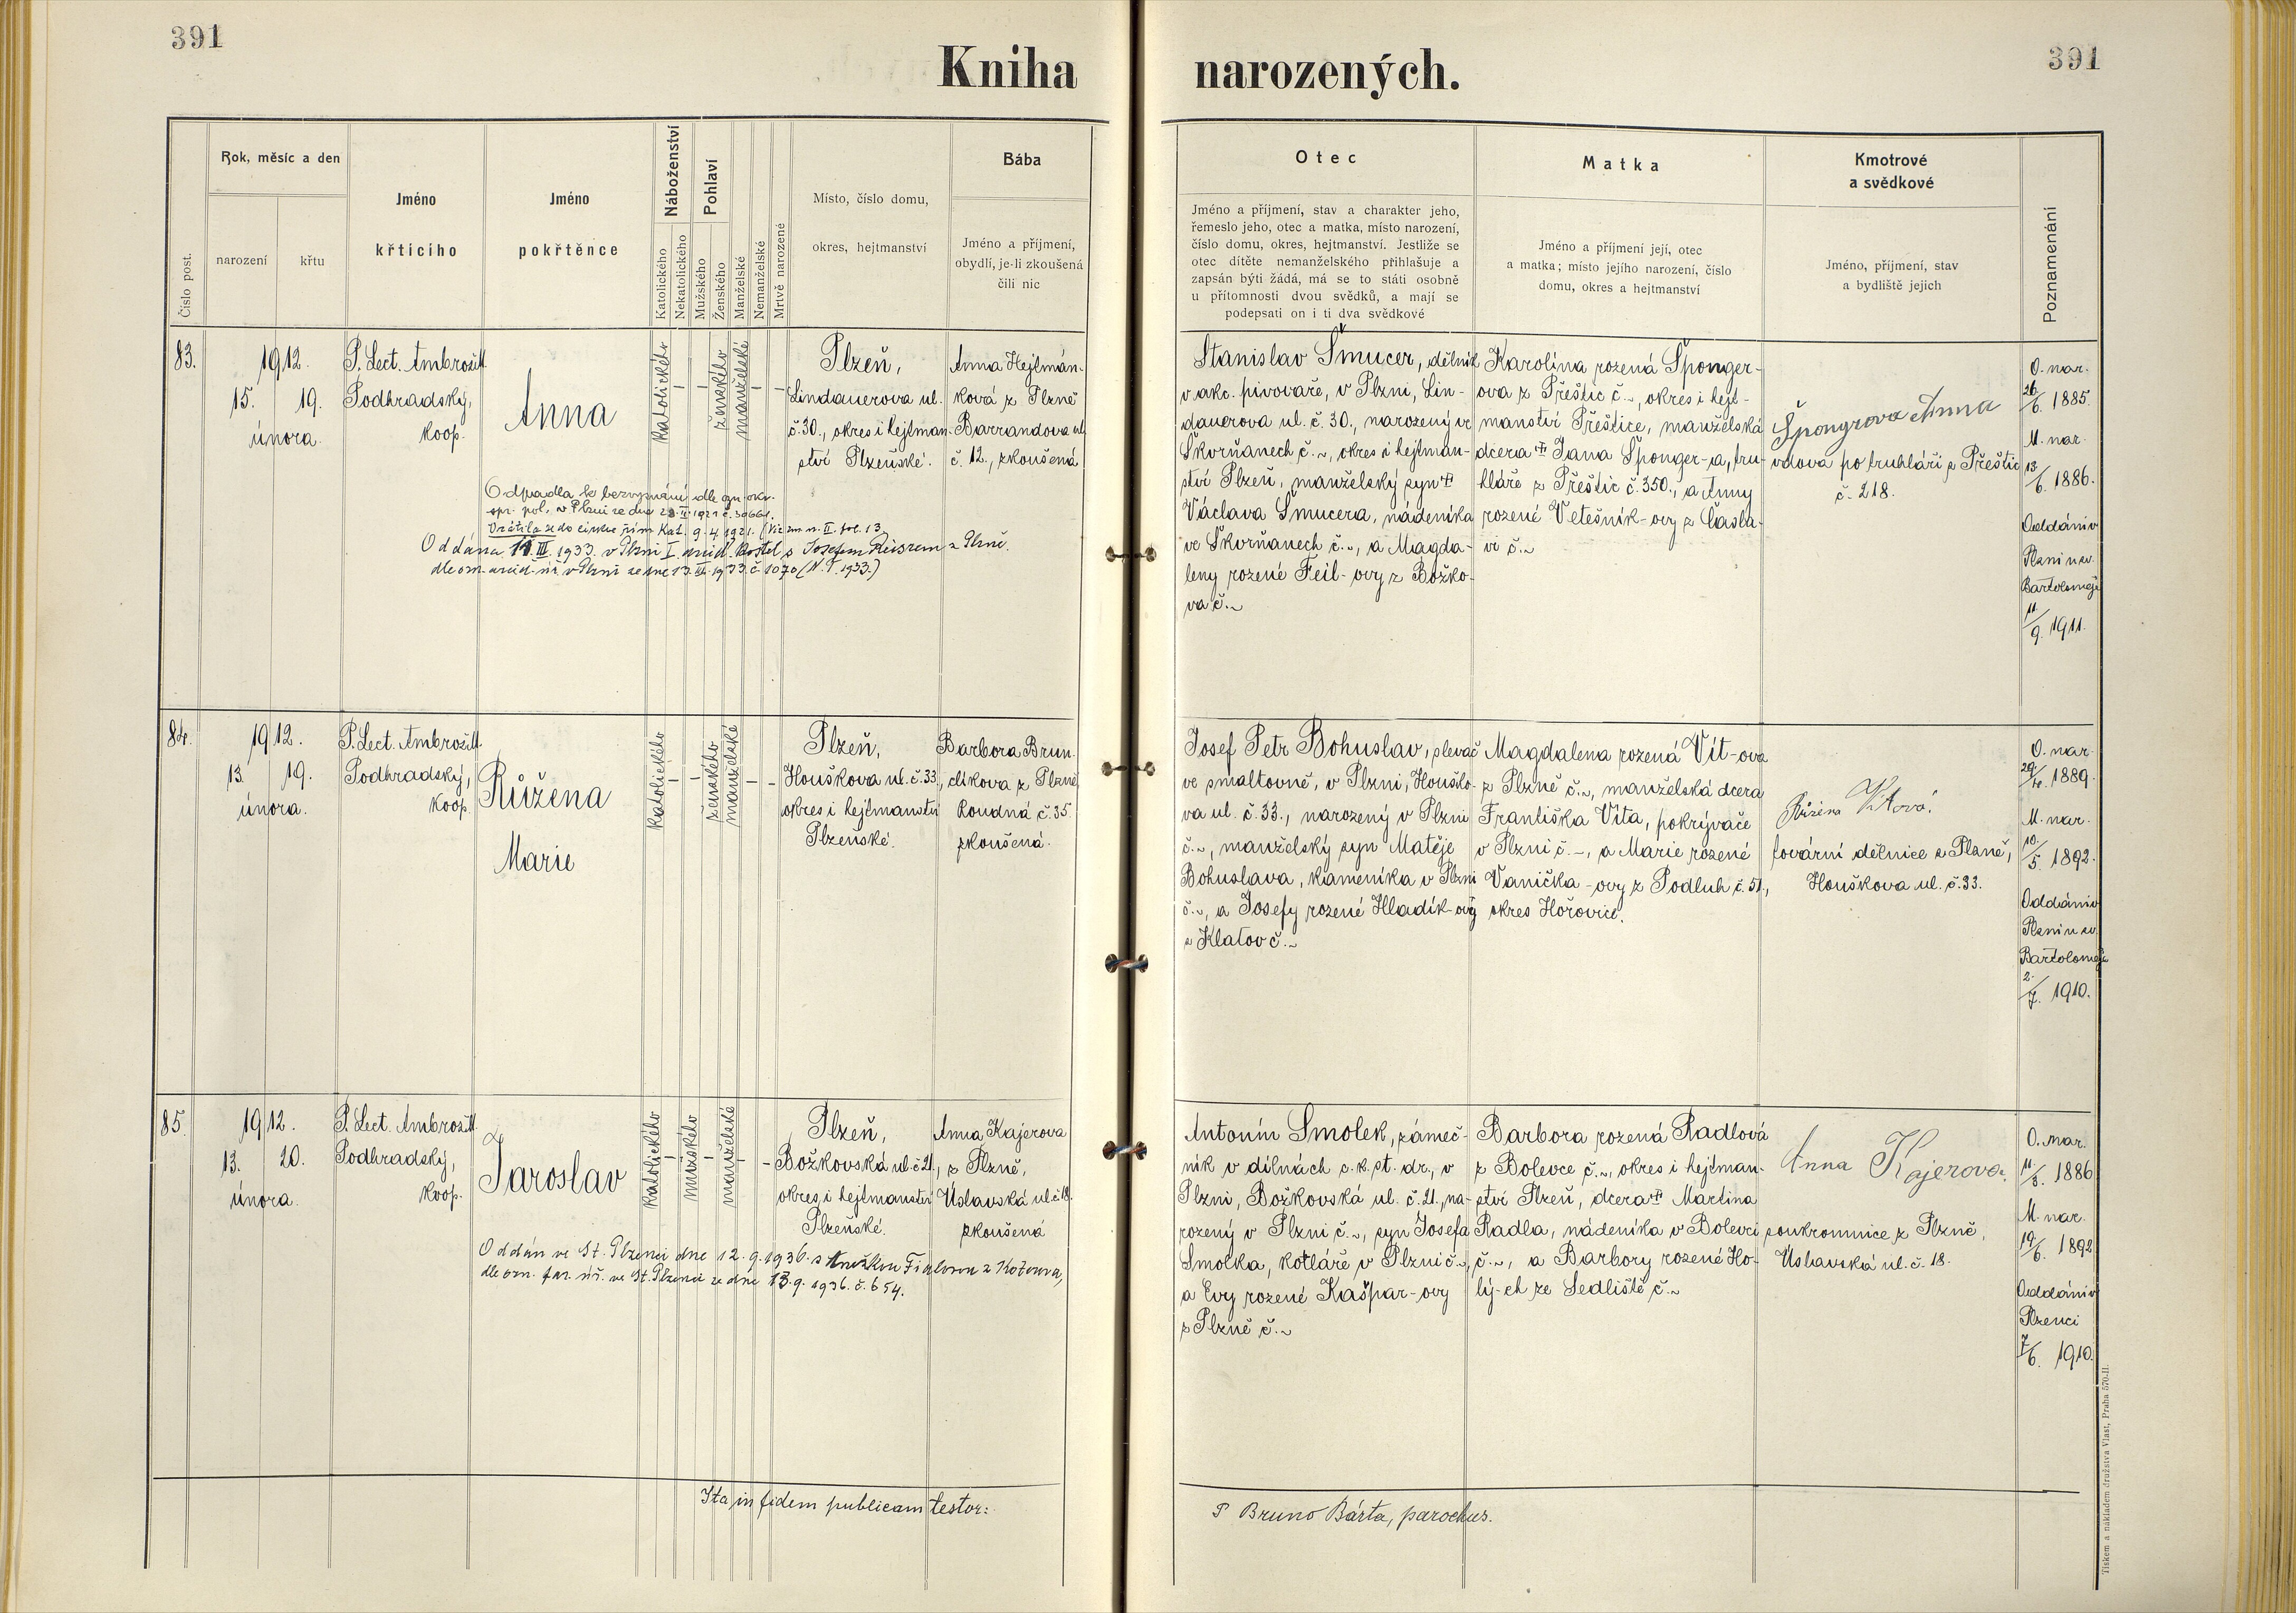 391
391
Kniha narozených.
Číslo post.
Rok, měsíc a den
narození
křtu
Jméno
křtícího
Jméno
pokřtěnce
Náboženství
Katolického
Nekatolického
Pohlaví
Mužského
Ženského
Manželské
Nemanželské
Mrtvě narozené
Místo, číslo domu,
okres, hejtmanství
Bába
Jméno a příjmení,
obydlí, je-li zkoušená
čili nic
Otec
Jméno a příjmení, stav a charakter jeho,
řemeslo jeho, otec a matka, místo narození,
číslo domu, okres, hejtmanství. Jestliže se
otec dítěte nemanželského přihlašuje a
zapsán býti žádá, má se to státi osobně
u přítomnosti dvou svědků, a mají se
podepsati on i ti dva svědkové
Matka
Jméno a příjmení její, otec
a matka; místo jejího narození, číslo
domu, okres a hejtmanství
Kmotrové
a svědkové
Jméno, příjmení, stav
a bydliště jejich
Poznamenání
83.
1912.
15. 19.
února.
P. Lect. Ambrož M.
Podhradský,
koop.
Anna
katolického
ženského
manželské
Plzeň,
Lindauerova ul.
č. 30., okres i hejtman-
ství Plzeňské.
Anna Hejtmán-
ková z Plzně
Barrandova ul.
č. 12., zkoušená
Odpadla k bezvyznání dle ozn. okr.
spr. pol. v Plzni ze dne
Vrátila se do církve řím. kat. 9.4.1921.
Oddána 11. III. 1933. v Plzni I. arcid. kostel s Josefem z Plzně.
dle ozn. arcid. úř. v Plzni ze dne 13. III. 1933. č. 1070
Stanislav Šmucer, dělník
v akc. pivovaře, v Plzni, Lin-
dauerova ul. č. 30., narozený ve
Škvrňanech č. ~, okres i hejtman-
ství Plzeň, manželský syn †
Václava Šmucera, nádeníka
ve Škvrňanech č. ~, a Magda-
leny rozené Feil-ovy z Božko-
va č. ~
Karolina rozená Šponger-
ova z Přeštic č. ~, okres i hejt-
manství Přeštice, manželská
dcera † Jana Šponger-a, tru-
hláře z Přeštic č. 350., a Anny
rozené Vetešník-ovy z Časla-
vi č. ~
Špongrova Anna
vdova po truhláři z Přeštic
č. 218.
O. nar.
26./6. 1885.
M. nar.
13./6. 1886.
Oddáni v
Plzni u sv.
Bartoloměje
11./9. 1911.
84.
1912.
13. 19.
února.
P. Lect. Ambrož M.
Podhradský,
koop.
Růžena
Marie
katolického
ženského
manželské
Plzeň,
Houškova ul. č. 33.,
okres i hejtmanství
Plzeňské.
Barbora Brun-
clíkova z Plzně,
Roudná č. 35.
zkoušená.
Josef Petr Bohuslav, plevač
ve smaltovně, v Plzni, Houško-
va ul. č. 33., narozený v Plzni
č. ~, manželský syn Matěje
Bohuslava, kameníka v Plzni
č. ~, a Josefy rozené Hladík-ový
z Klatov č. ~
Magdalena rozená Vít-ova
z Plzně č. ~, manželská dcera
Františka Víta, pokrývače
v Plzni č. ~, a Marie rozené
Vanička-ovy z Podluh č. 51.,
okres Hořovice.
Růžena Vítová.
tovární dělnice z Plzně,
Houškova ul. č. 33.
O. nar.
1889.
M. nar.
10./5. 1892.
Oddáni v
Plzni u sv.
Bartoloměje
2./7. 1910.
85.
1912.
13. 20.
února.
P. Lect. Ambrož M.
Podhradský,
koop.
Jaroslav
katolického
mužského
manželské
Plzeň,
Božkovská ul. č. 21.,
okres i hejtmanství
Plzeňské.
Anna Kajerova
z Plzně,
Úslavská ul. č. 18.
zkoušená
Oddán ve St. Plzenci dne 12. 9. 1936. s Anežkou Fialovou z Koterova,
dle ozn. far. úř. ve St. Plzenci ze dne 13. 9. 1936. č. 654.
Antonín Smolek, zámeč-
ník v dílnách c. k. st. dr., v
Plzni, Božkovská ul. č. 21., na-
rozený v Plzni č. ~, syn Josefa
Smolka, kotláře v Plzni č. ~,
a Evy rozené Kašpar-ovy
z Plzně č. ~
Barbora rozená Radlová
z Bolevce č. ~, okres i hejtman-
ství Plzeň, dcera † Martina
Radla, nádeníka v Bolevci
č. ~, a Barbory rozené Ho-
lý-ch ze Sedliště č. ~
Anna Kajerova.
soukromnice z Plzně,
Úslavská ul. č. 18.
O. nar.
1886
M. nar.
19./6. 1892
Oddáni v
Plzenci
7./6. 1910.
Ita in fidem publicam testor:
P Bruno Bárta, parochus.
Tiskem a nákladem družstva Vlast, Praha 570-II.